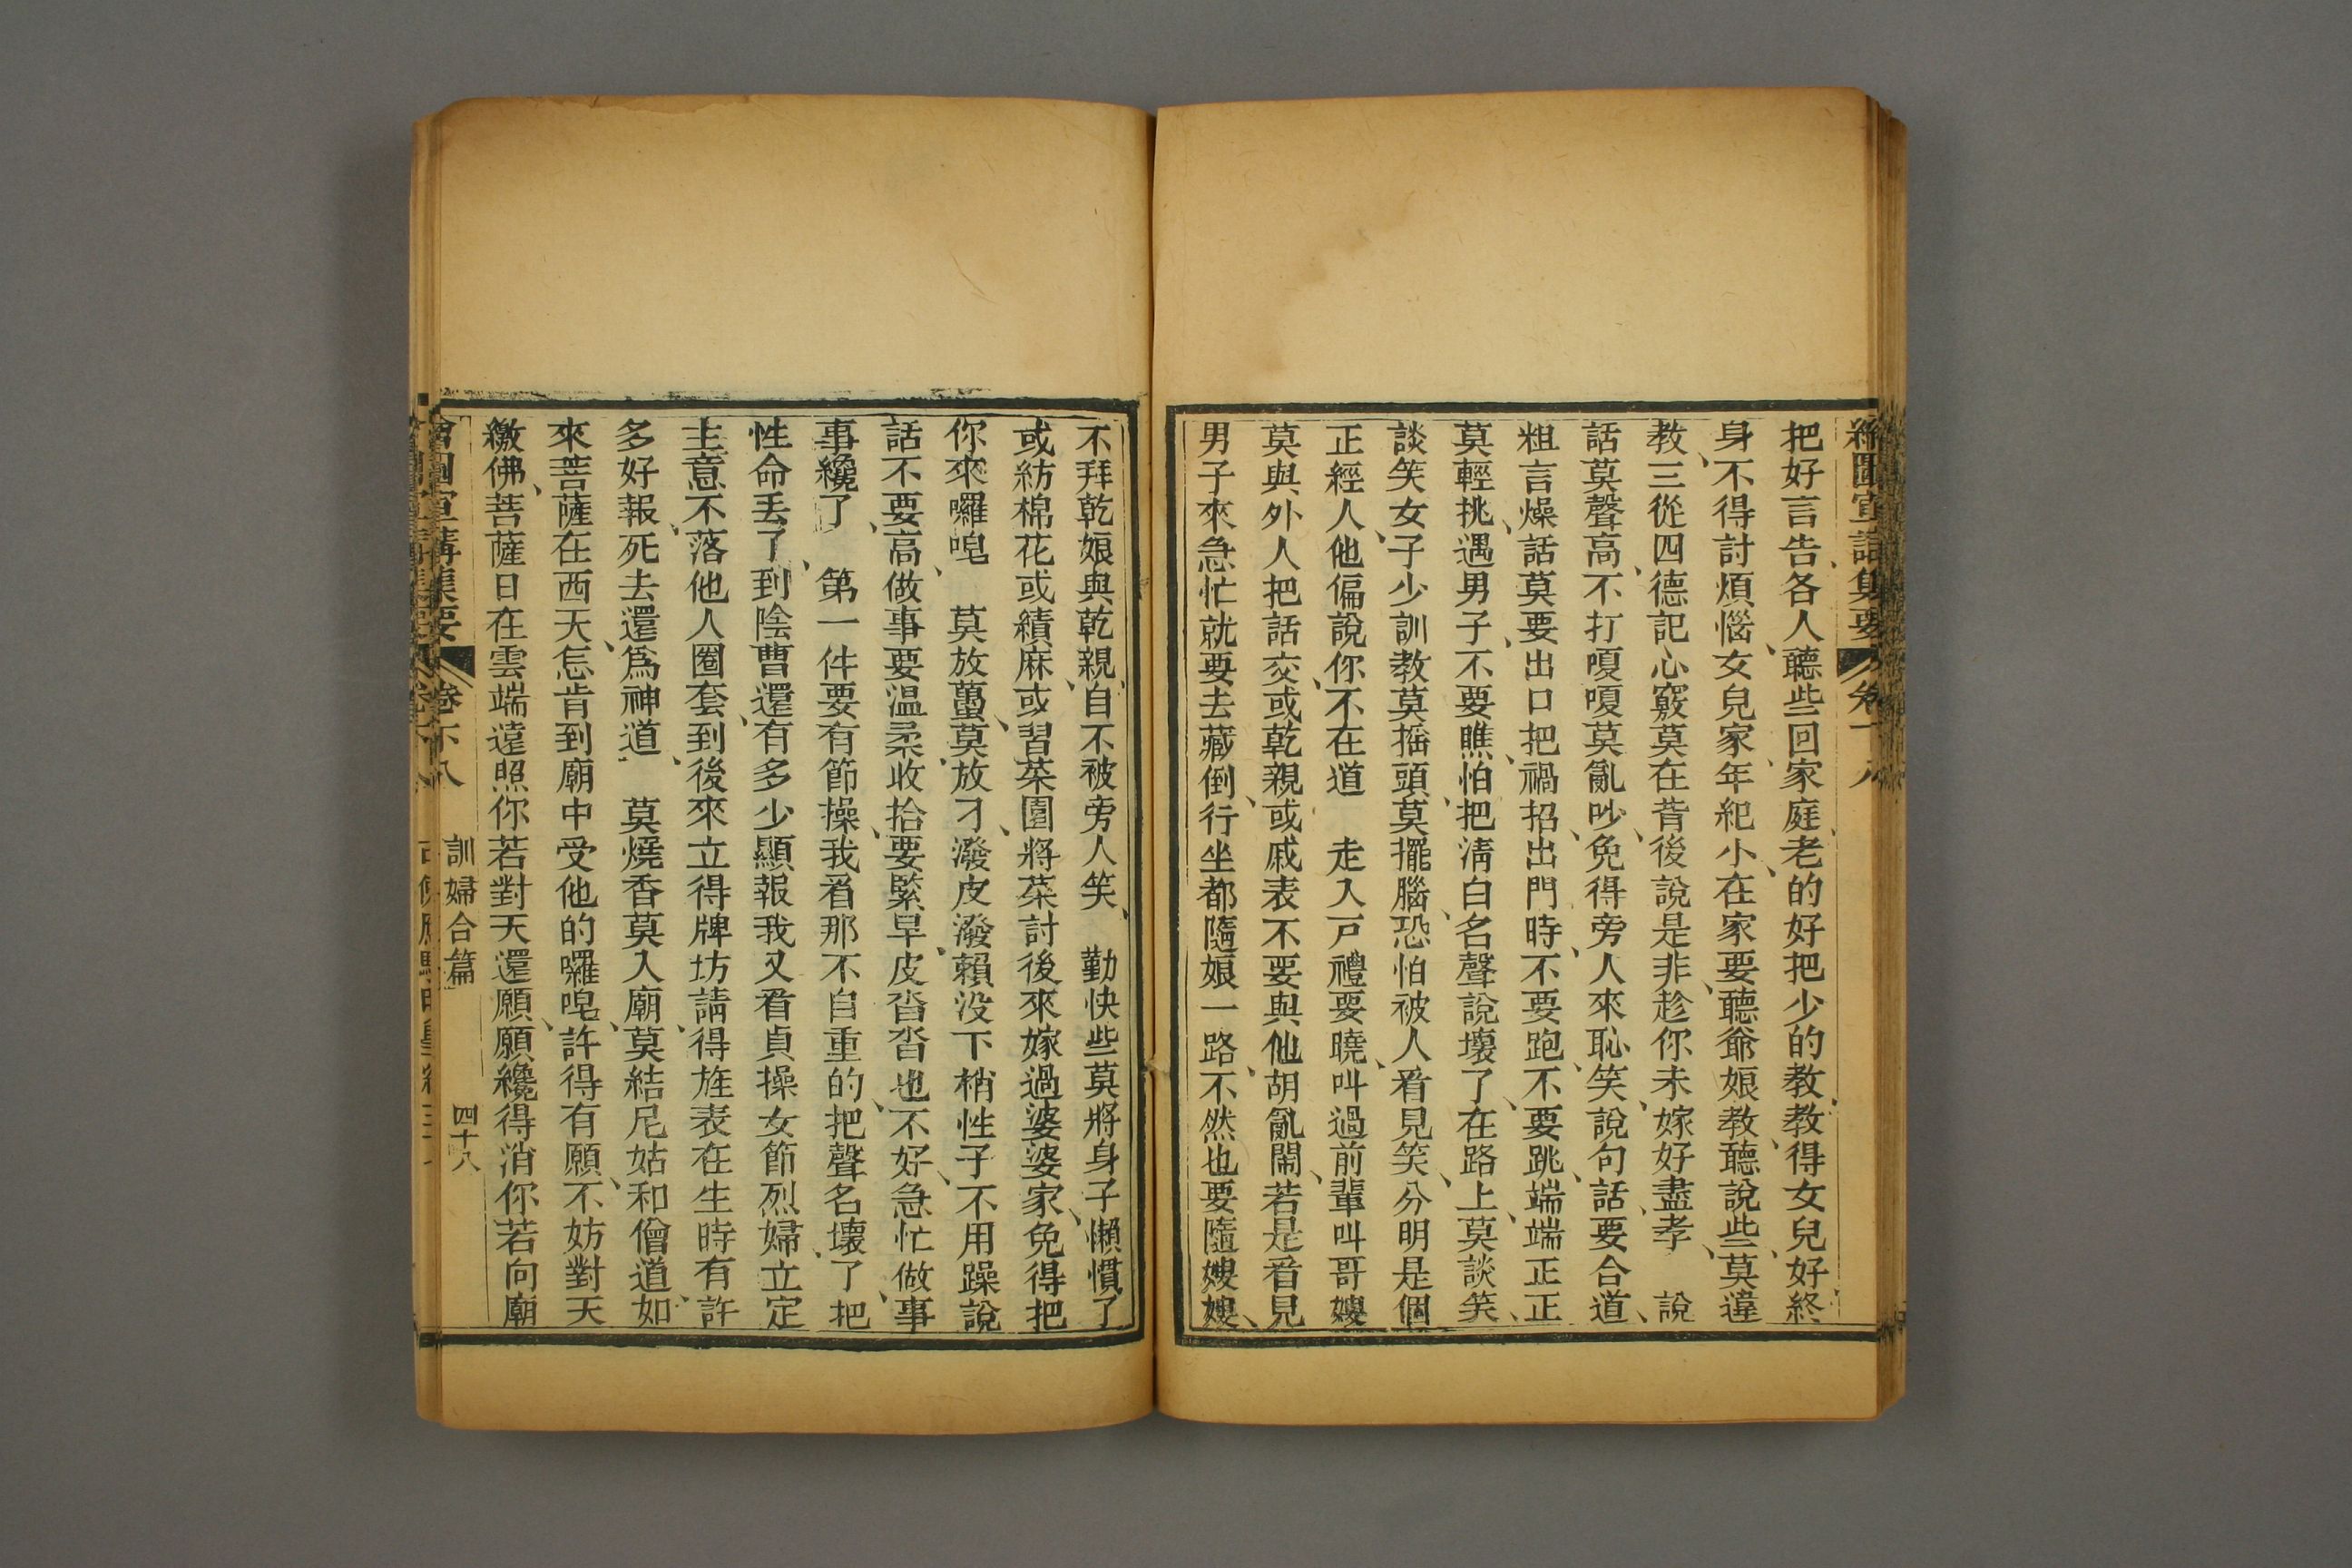 把好言告、各人聽些回家庭、老的好把少的教、教得女兒好終
身、不得討煩惱、女兒家、年紀小、在家要聽爺娘教、聽說些、莫違
教、三從四德記心竅莫在背後說是非、趁你未嫁好盡孝、 說
話莫聲高、不打嗄嗄莫亂吵、免得旁人來恥笑、說句話、要合道、
粗言燥話莫要出口把禍招、出門時、不要跑、不要跳、端端正正
莫輕挑、遇男子、不要瞧、怕把清白名聲說壞了、在路上、莫談笑、
談笑女子少訓教、莫搖頭、莫擺腦、恐怕被人看見笑、分明是個
正經人、他偏說你不在道 走人戶禮要曉、叫過前輩叫哥嫂
莫與外人把話交、或乾親或戚表不要與他胡亂鬧、若是看見
男子來急忙就要去藏倒、行坐都隨娘一路、不然也要隨嫂嫂、
不拜乾娘與乾親、自不被旁人笑、 勤快些莫將身子懶慣了
或紡棉花或績麻、或習菜園將菜討後來嫁過婆婆家、免得把
你來囉唣 莫放蠻、莫放刁、潑皮潑賴沒下梢性子不用躁說
話不要高、做事要溫柔、收拾要緊早、皮沓沓也不好、急忙做事
事纔了、 第一件要有節操、我看那不自重的、把聲名壞了、把
性命丟了、到陰曹還有多少顯報我又看貞操女節烈婦、立定
主意不落他人圈套、到後來立得牌坊請得旌表在生時有許
多好報、死去還為神道、 莫燒香莫入廟、莫結尼姑和僧道、如
來菩薩在西天、怎肯到廟中受他的囉唣、許得有願、不妨對天
繳佛、菩薩日在雲端遠照你若對天還願、願纔得消你若向廟
訓婦合篇
四十八